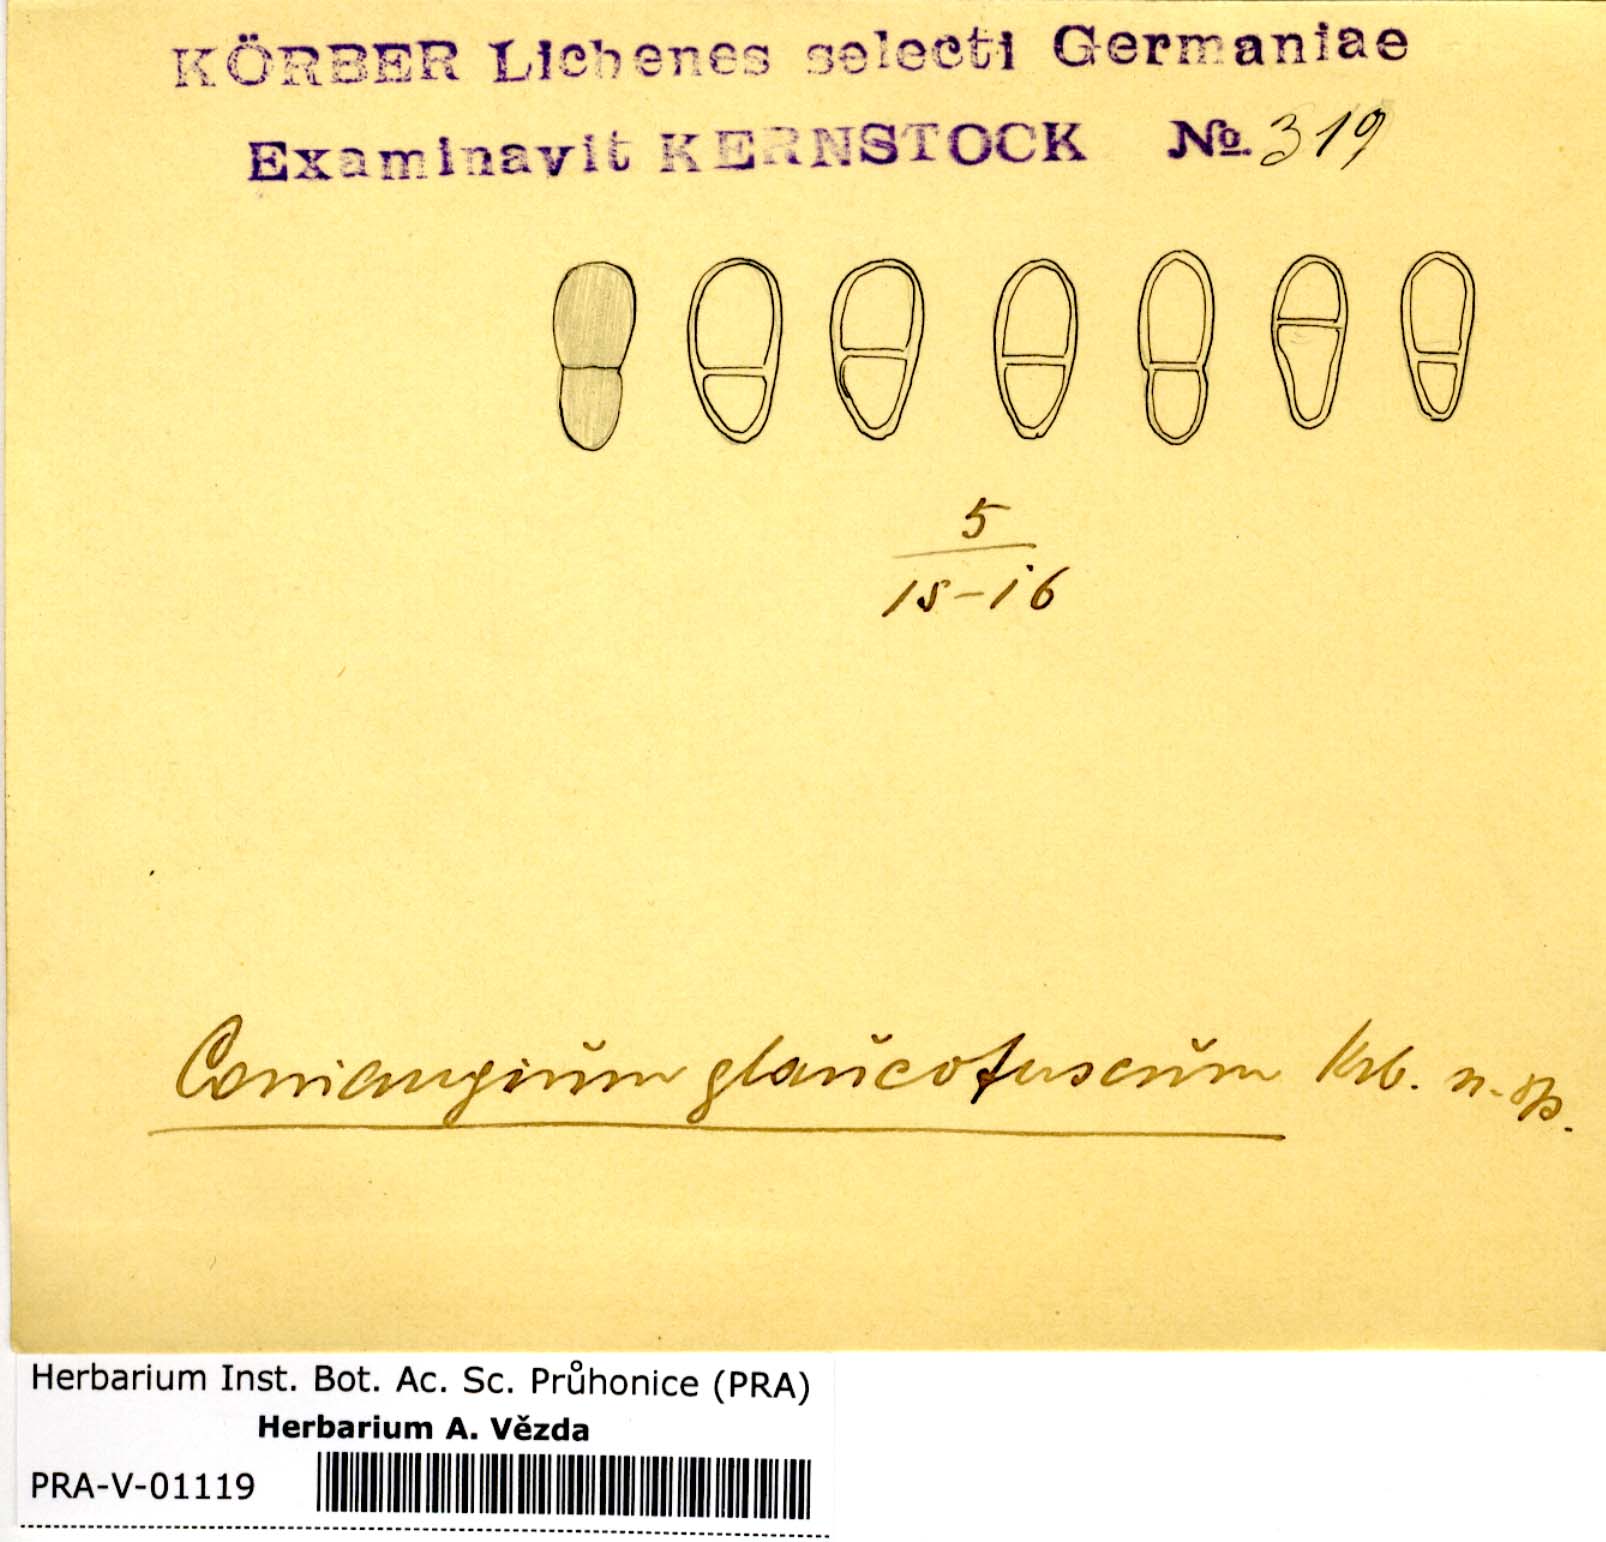 KÖRBER Lichenes selecti Germaniae
Examinavit KERNSTOCK No. 319
5
15-16
Coniangiŭm glaŭcofuscŭm Krb. n. sp.
Herbarium Inst. Bot. Ac. Sc. Průhonice (PRA)
Herbarium A. Vězda
PRA-V-01119